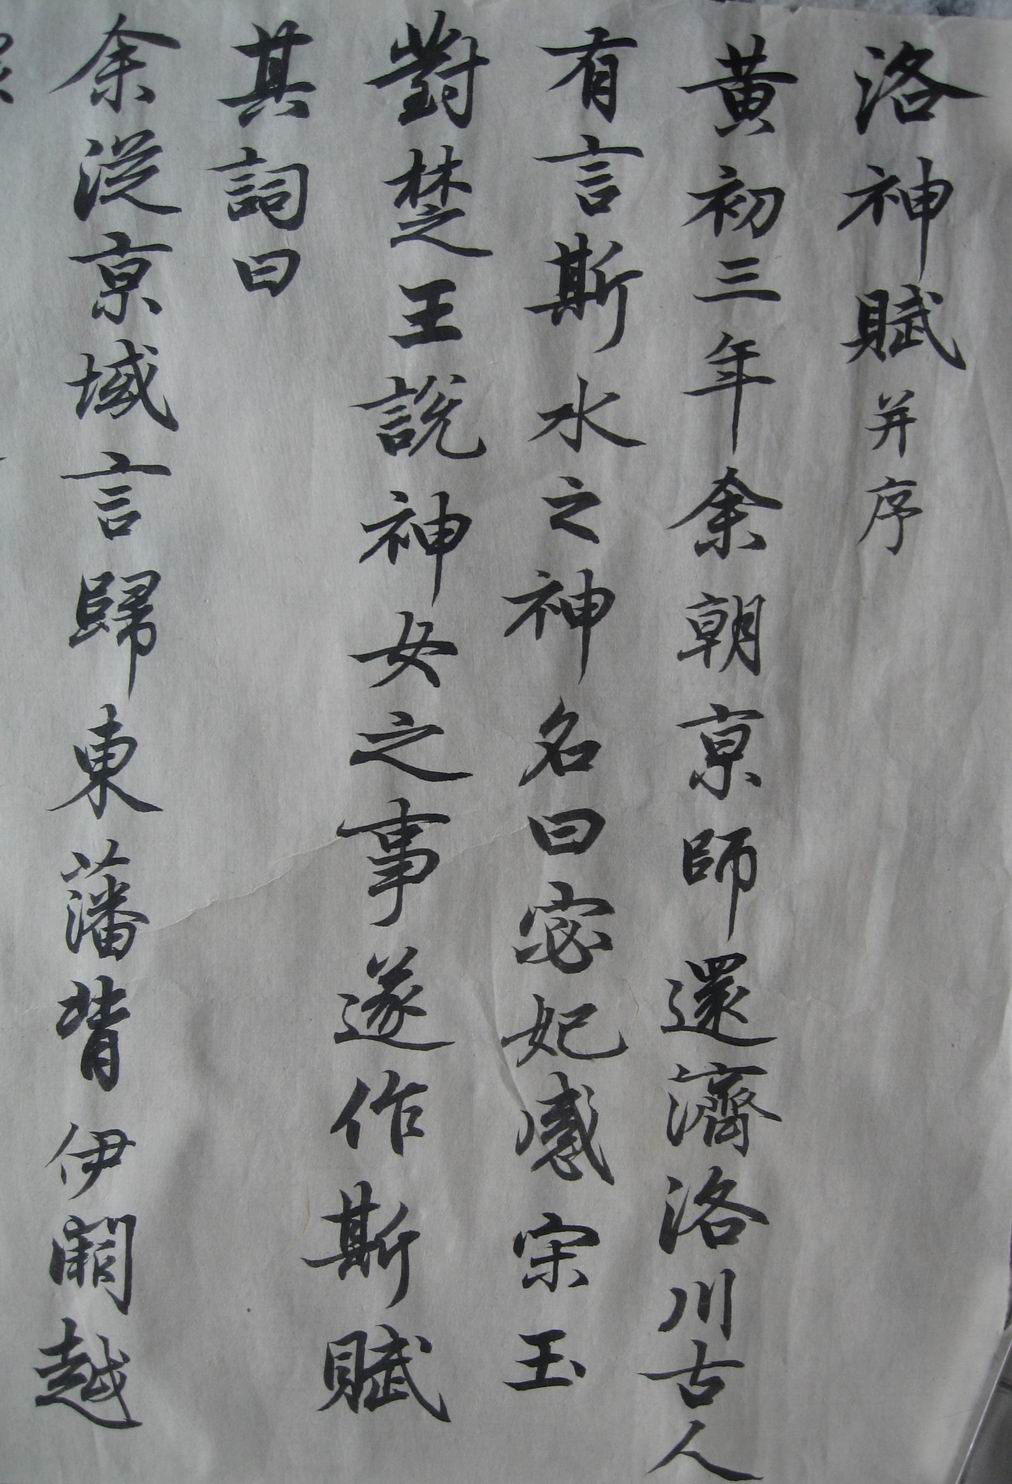 洛神賦并序
黃初三年余朝京師還濟洛川古人
有言斯水之神名曰宓妃感宋玉
對楚王說神女之事遂作斯賦
其詞曰
余從京域言歸東藩背伊闕越